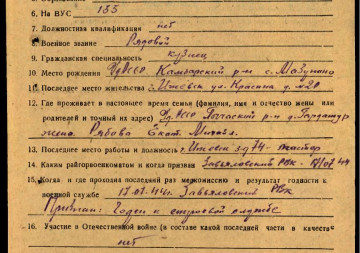 6. На ВУС 133
7. Должностная квалификация нет
8. Военное звание Рядовой
9. Гражданская специальность кузнец
10. Место рождения УдАССР Камбарский р-н с. Мазунино
11. Последнее место жительства г. Ижевск ул. Красина д. №20
12. Где проживает в настоящее время семья (фамилия, имя и отчество жены или
родителей и точный их адрес) Уд. АССР р-н д.
жена Рябова Екат. Михайл.
13. Последнее место работы и должность г. Ижевск з-д 74
14. Каким райгорвоенкоматом и когда призван Завьяловский РВК
15. Когда и где проходил последний раз медкомиссию и результат годности к
военной службе 17.07.44г. Завьяловский РВК
Признан: Годен к строевой службе
16. Участие в Отечественной войне (в составе какой последней части в качестве
нет